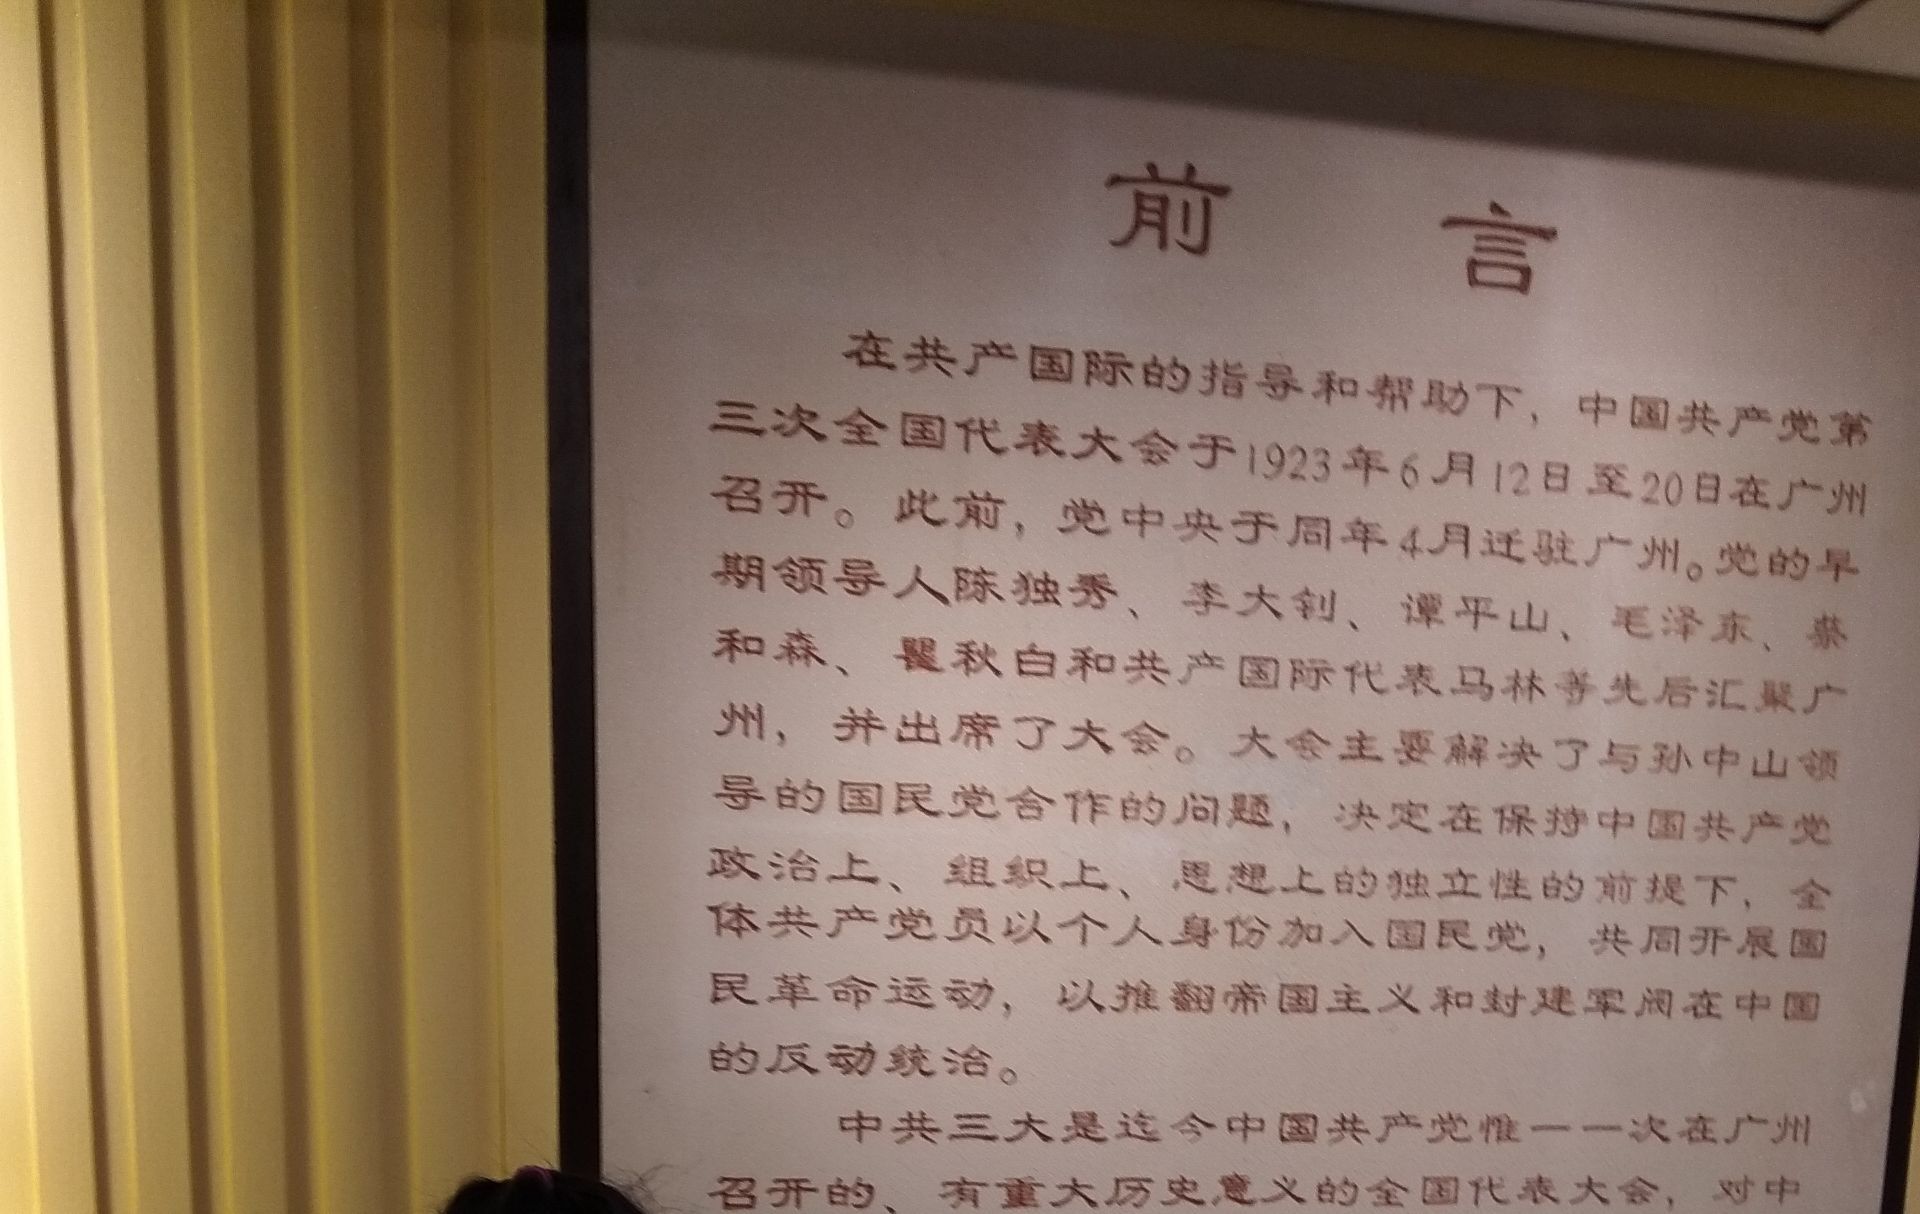 前言
在共产国际的指导和帮助下，中国共产党第
三次全国代表大会于1923年6月12日至20日在广州
召开。此前，党中央于同年4月迁驻广州。党的早
期领导人陈独秀、李大钊、谭平山、毛泽东、蔡
和森、瞿秋白和共产国际代表马林等先后汇聚广
州，并出席了大会。大会主要解决了与孙中山领
导的国民党合作的问题，决定在保持中国共产党
政治上、组织上、思想上的独立性的前提下，全
体共产党员以个人身份加入国民党，共同开展国
民革命运动，以推翻帝国主义和封建军阀在中国
的反动统治。
中共三大是迄今中国共产党惟一一次在广州
召开的、有重大历史意义的全国代表大会，对中